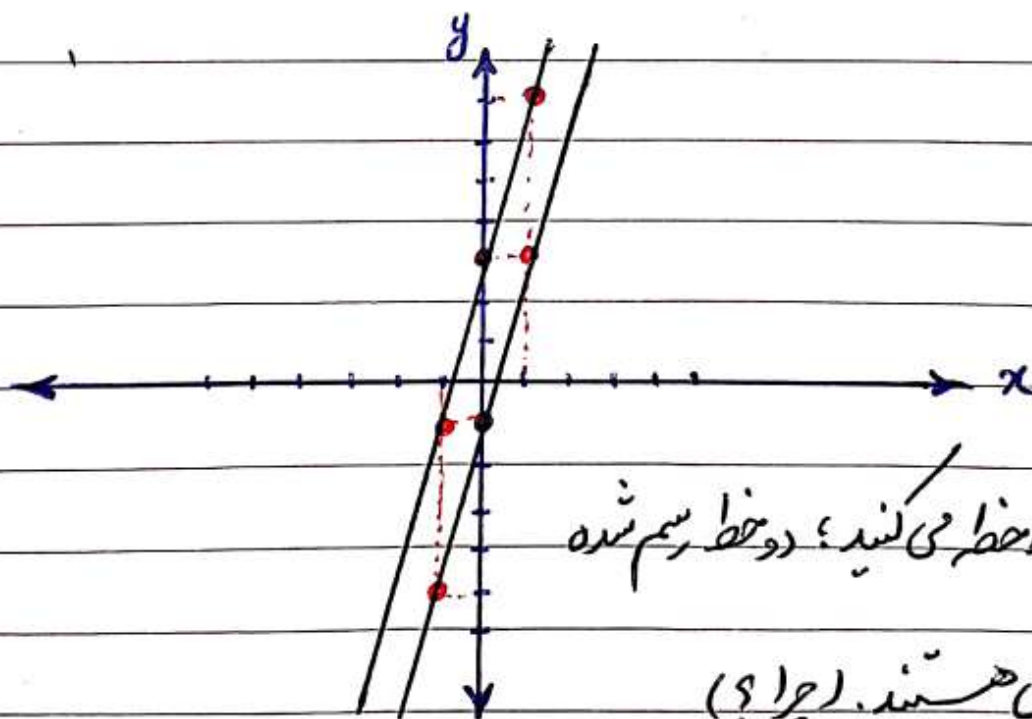 ۱
y
x
می‌کنید؛ دو خط رسم شده
هستند. (چرا؟)